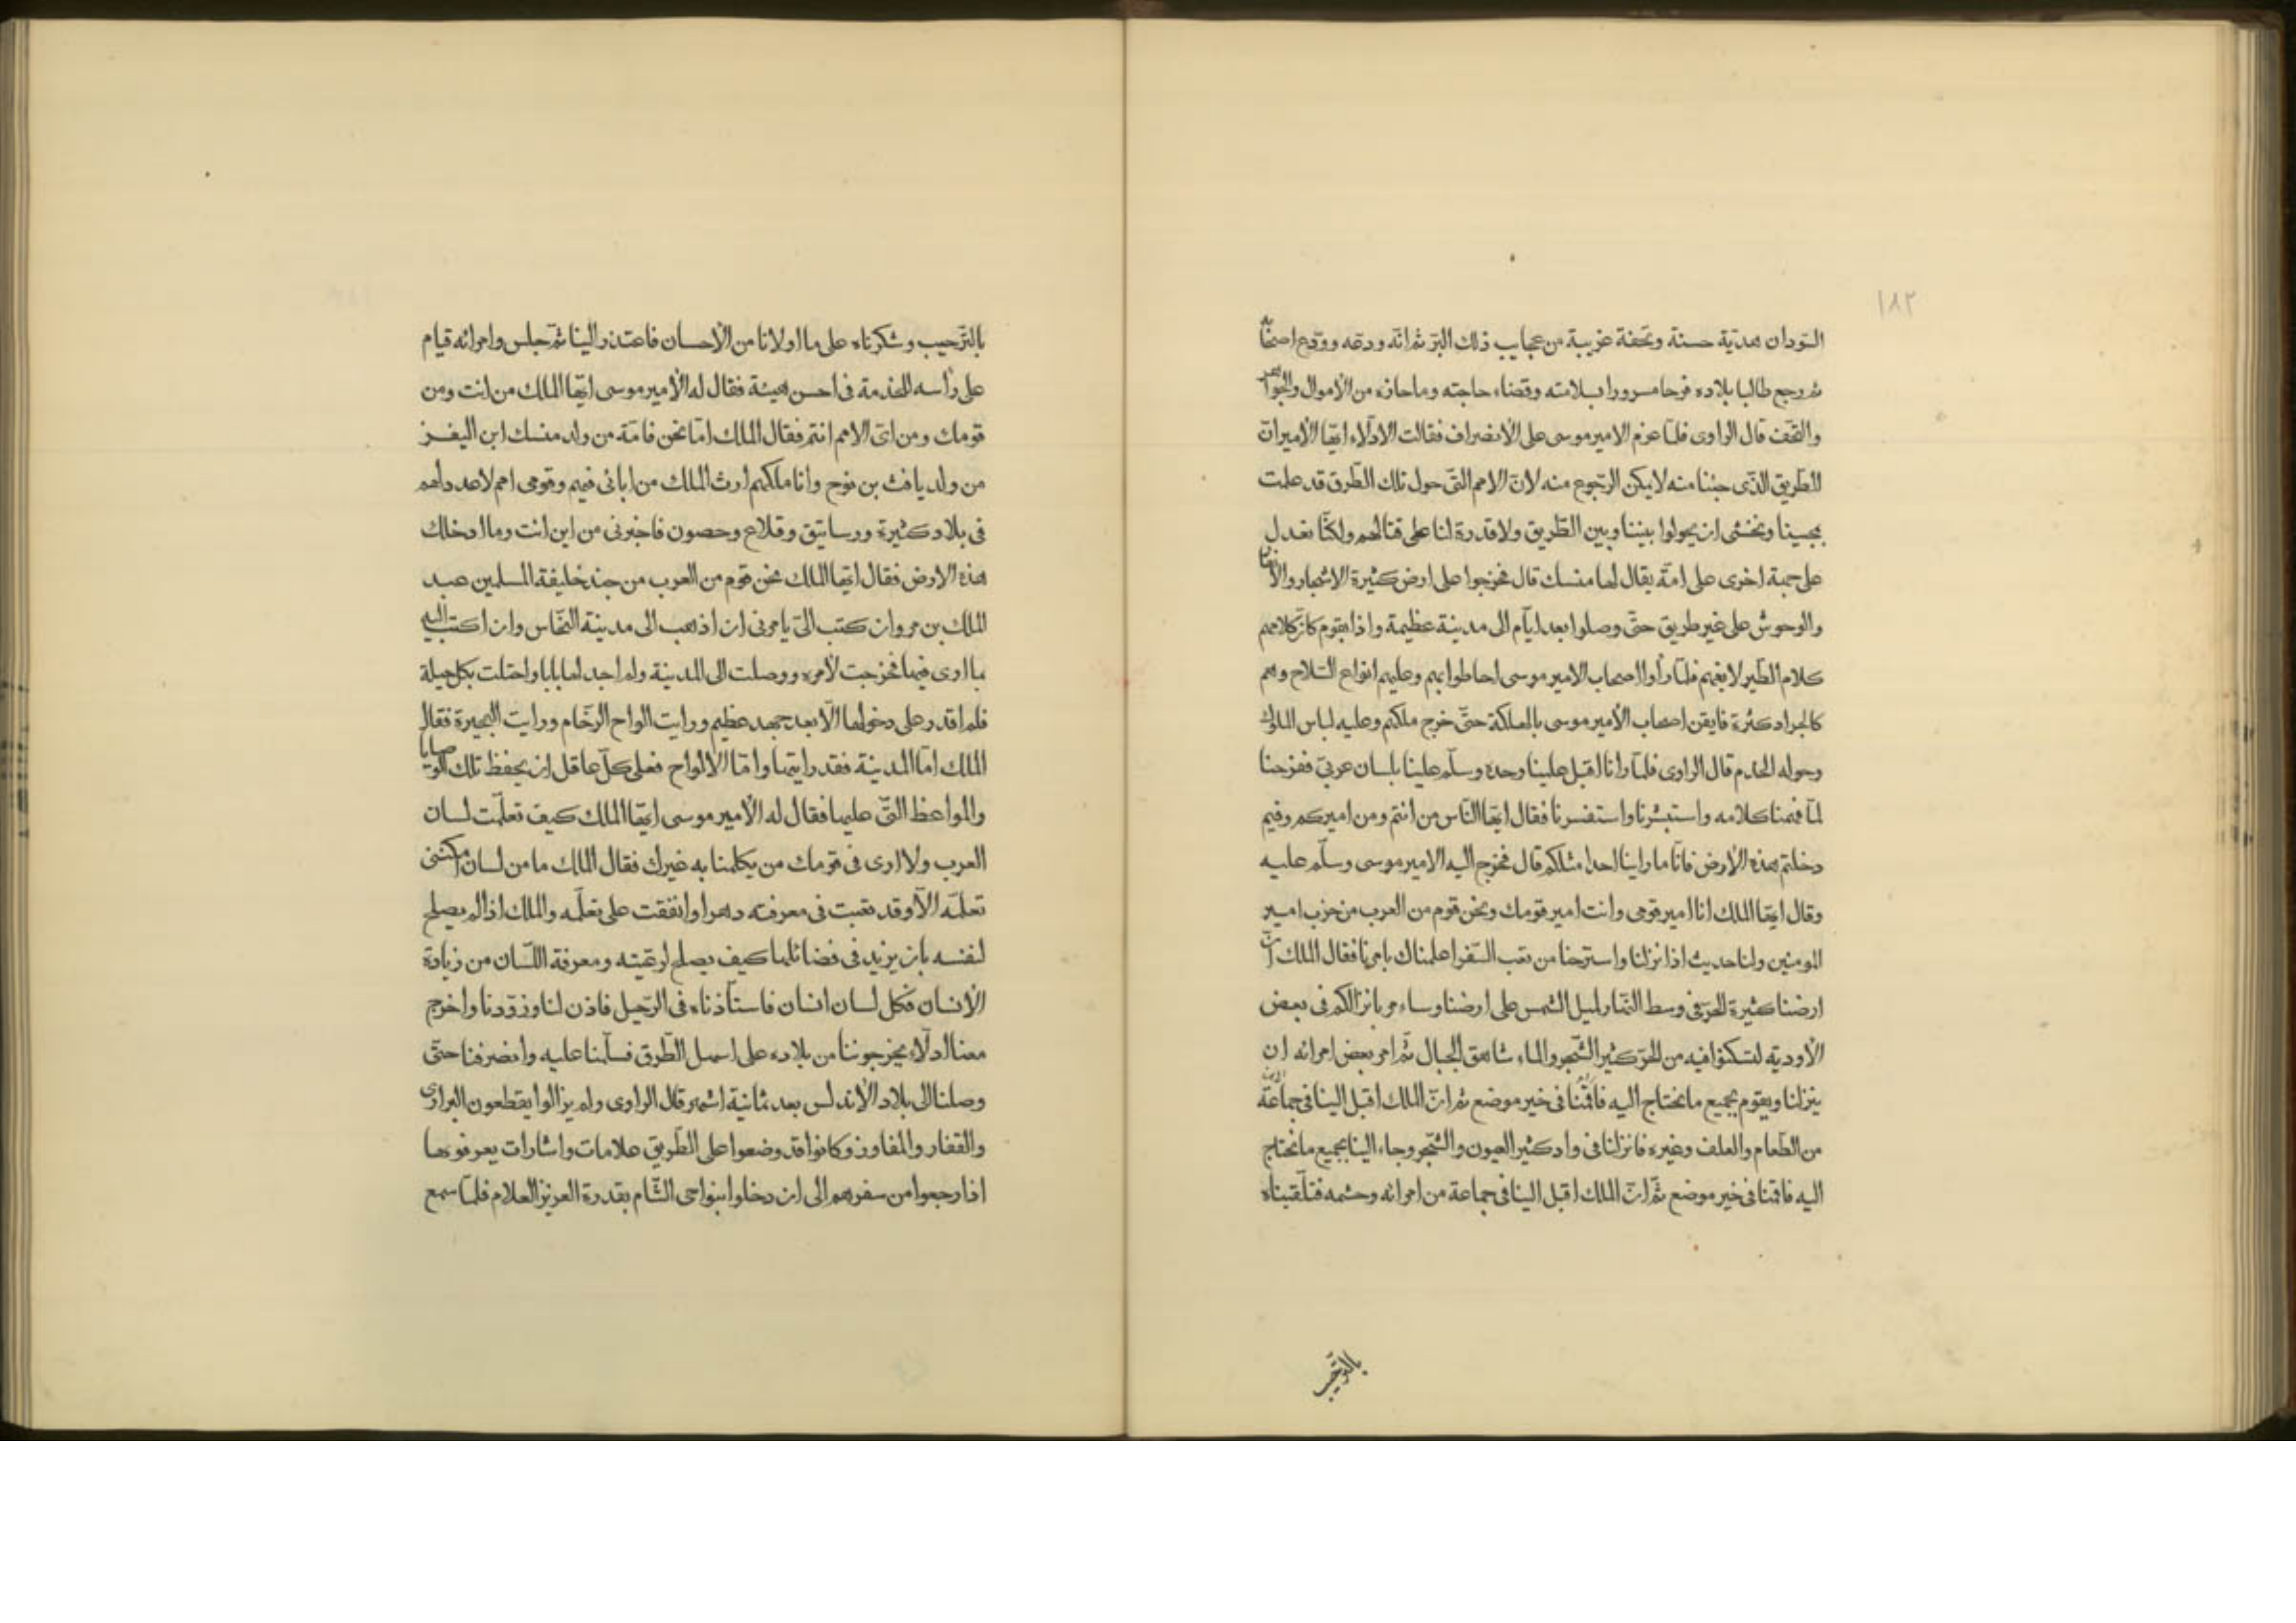 ١٨٢
السودان هدية حسنة وتحفة غريبة من عجايب ذلك البر ثم انه ودعه وودع اصحابه
ثم رجع طالبا بلاده فرحا مسرورا بسلامته وقضاء حاجته وما حازه من الاموال والجواهر
والتحف قال الراوى فلمّا عزم الامير موسى على الأنصراف فقالت الادلّاء ايّها الأمير انّ
الطّريق الذّى جئنا منه لا يمكن الرّجوع منه لانّ الامم التّى حول تلك الطّرق قد علمت
بمجيئنا ونخشى ان يحولوا بيننا وبين الطّريق ولا قدرة لنا على قتالهم ولكنّا نعدل
على جهة اخرى على امّة يقال لها منسك قال فخرجوا على ارض كثيرة الاشجار والانهار
والوحوش على غير طريق حتّى وصلوا بعد ايّام الى مدينة عظيمة واذا بقوم كان كلامهم
كلام الطّير لا يفهم فلمّا رأوا اصحاب الامير موسى احاطوا بهم وعليهم انواع السّلاح وهم
كالجراد كثرة فايقن اصحاب الأمير موسى بالهلكة حتّى خرج ملكهم وعليه لباس الملوك
وحوله الخدم قال الراوى فلمّا رانا اقبل علينا وحده وسلّم علينا بلسان عربىّ ففرحنا
لمّا فهمنا كلامه واستبشرنا واستفسرنا فقال ايّها النّاس من انتم ومن اميركم وفيم
دخلتم هذه الأرض فانّا ما راينا احدا مثلكم قال فخرج اليه الامير موسى وسلّم عليه
وقال ايّها الملك انا امير قومى وانت امير قومك ونحن قوم من العرب من حزب امير
المومنين ولنا حديث اذا نزلنا واسترحنا من تعب السّفر اعلمناك بامرنا فقال الملك انّ
ارضنا كثيرة الحرّ فى وسط النّهار لميل الشمس على ارضنا وساءمر بانزالكم فى بعض
الأودية لتسكنوا فيه من الحرّ كثير الشّجر والماء شاهق الجبال ثمّ امر بعض امرائه ان
ينزلنا ويقوم بجميع ما نحتاج اليه فاقمنا فى خير موضع ثم انّ الملك اقبل الينا فى جماعة
من الطّعام والعلف وغيره فانزلنا فى واد كثير العيون والشّجر وجاء الينا بجميع ما نحتاج
اليه فاقمنا فى خير موضع ثمّ انّ الملك اقبل الينا فى جماعة من امرائه وحشمه فتلقيناه
بالترحيب
بالتّرحيب وشكرناه على ما اولانا من الأحسان فاعتذر الينا ثمّ جلس وامرائه قيام
على رأسه للخدمة فى احسن هيئة فقال له الأمير موسى ايّها الملك من انت ومن
قومك ومن اىّ الامم انتم فقال الملك امّا نحن فامّة من ولد منسك ابن اليغـز
من ولد يافث بن نوح وانا ملكهم ارث الملك من ابائى فيهم وقومى امم لا عدد لهم
فى بلاد كثيرة ورساتيق وقلاع وحصون فاخبرنى من اين انت وما ادخلك
هذه الارض فقال ايّها الملك نحن قوم من العرب من جند خليفة المسلمين عبد
الملك بن مروان كتب الىّ يامرنى ان اذهب الى مدينة النّحاس وان اكتب اليه
ما ارى فيها فخرجت لأمره ووصلت الى المدينة ولم اجد لها بابا واحتلت بكل حيلة
فلم اقدر على دخولها الّا بعد جهد عظيم ورايت الواح الرخام ورايت البحيرة فقال
الملك امّا المدينة فقد رايتها وامّا الالواح فعلى كلّ عاقل ان يحفظ تلك الوصايا
والمواعظ التّى عليها فقال له الأمير موسى ايّها الملك كيف تعلّمت لسان
العرب ولا ارى فى قومك من يكلمنا به غيرك فقال الملك ما من لسان امكننى
تعلّمه الّا وقد تعبت فى معرفته دهرا وانفقت على تعلّمه والملك اذا لم يصلح
لنفسه بان يزيد فى فضائلها كيف يصلح لرعيته ومعرفة اللّسان من زيادة
الأنسان فكل لسان انسان فاستأذناه فى الرّحيل فاذن لنا وزوّدنا واخرج
معنا ادلّاء يخرجوننا من بلاده على اسهل الطّرق فسلّمنا عليه وانصرفنا حتّى
وصلنا الى بلاد الأندلس بعد ثمانية اشهر قال الراوى ولم يزالوا يقطعون البرارى
والقفار والمفاوز وكانوا قد وضعوا على الطّريق علامات واشارات يعرفونها
اذا رجعوا من سفرهم الى ان دخلوا بنواحى الشّام بقدرة العزيز العلام فلمّا سمع